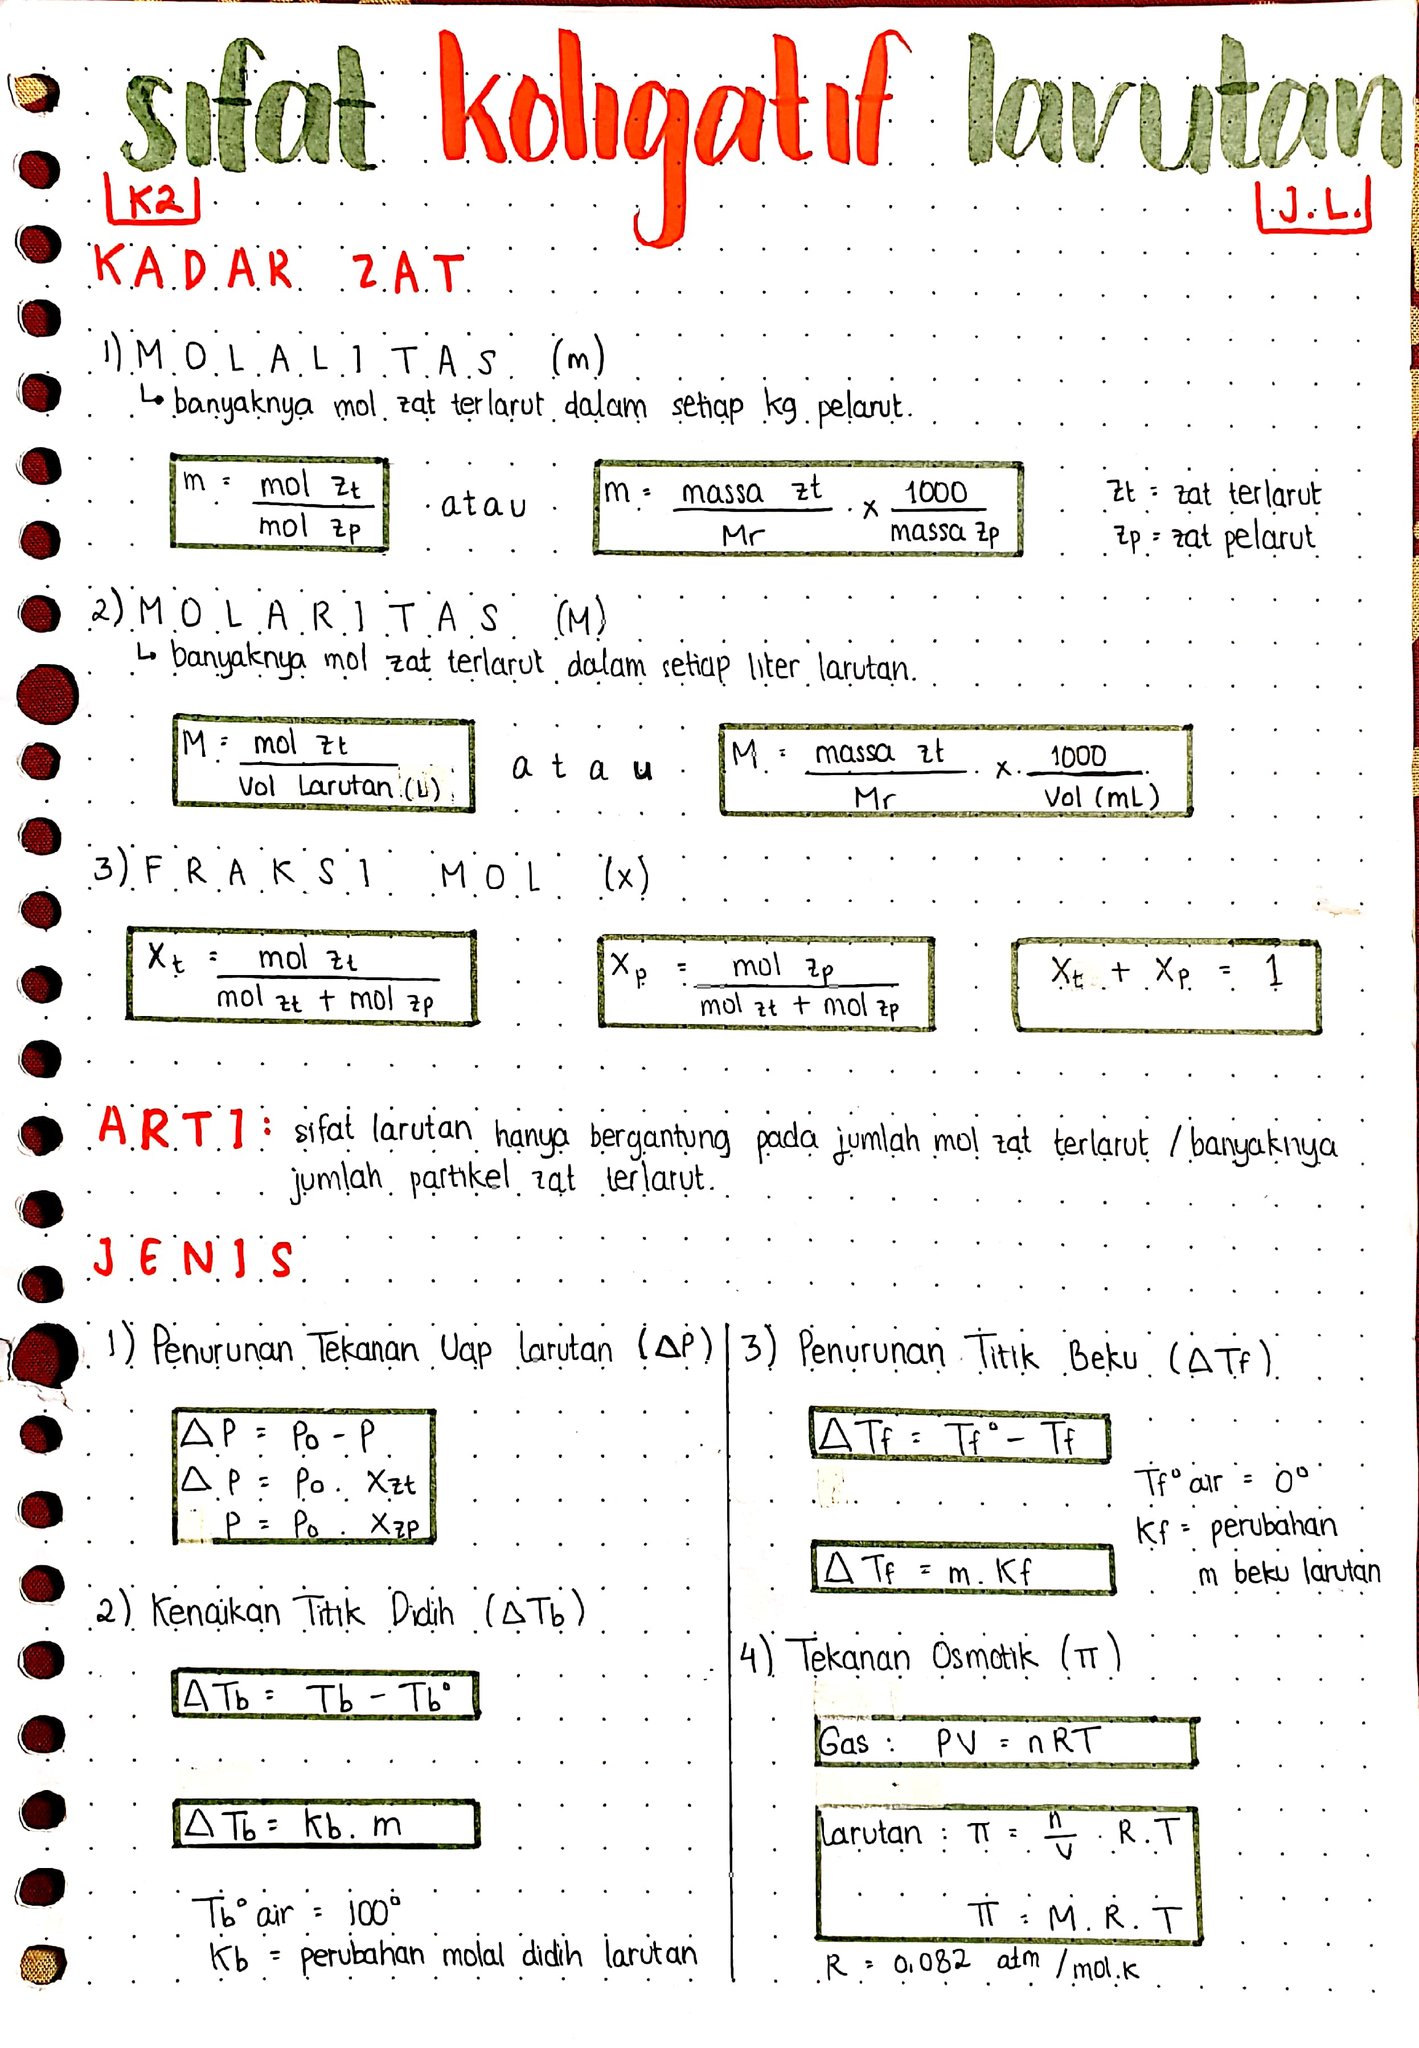 sifat koligatif larutan
K2
J.L.
KADAR ZAT
1) MOLALITAS (m)
↳ banyaknya mol zat terlarut dalam setiap kg pelarut.
m = mol zt / mol zp atau m = massa zt / Mr x 1000 / massa zp
zt = zat terlarut
zp = zat pelarut
2) MOLARITAS (M)
↳ banyaknya mol zat terlarut dalam setiap liter larutan.
M = mol zt / Vol Larutan (L) atau M = massa zt / Mr x 1000 / Vol (mL)
3) FRAKSI MOL (x)
Xt = mol zt / mol zt + mol zp
Xp = mol zp / mol zt + mol zp
Xt + Xp = 1
ARTI: sifat larutan hanya bergantung pada jumlah mol zat terlarut / banyaknya
jumlah partikel zat terlarut.
JENIS
1) Penurunan Tekanan Uap Larutan (ΔP)
ΔP = Po - P
ΔP = Po . Xzt
P = Po . Xzp
2) Kenaikan Titik Didih (ΔTb)
ΔTb = Tb - Tb°
ΔTb = Kb. m
Tb° air = 100°
Kb = perubahan molal didih larutan
3) Penurunan Titik Beku (ΔTf)
ΔTf = Tf° - Tf
Tf° air = 0°
Kf = perubahan
m beku larutan
ΔTf = m. Kf
4) Tekanan Osmotik (π)
Gas : PV = nRT
Larutan : π = n/V . R.T
π = M. R. T
R = 0,082 atm /mol.K